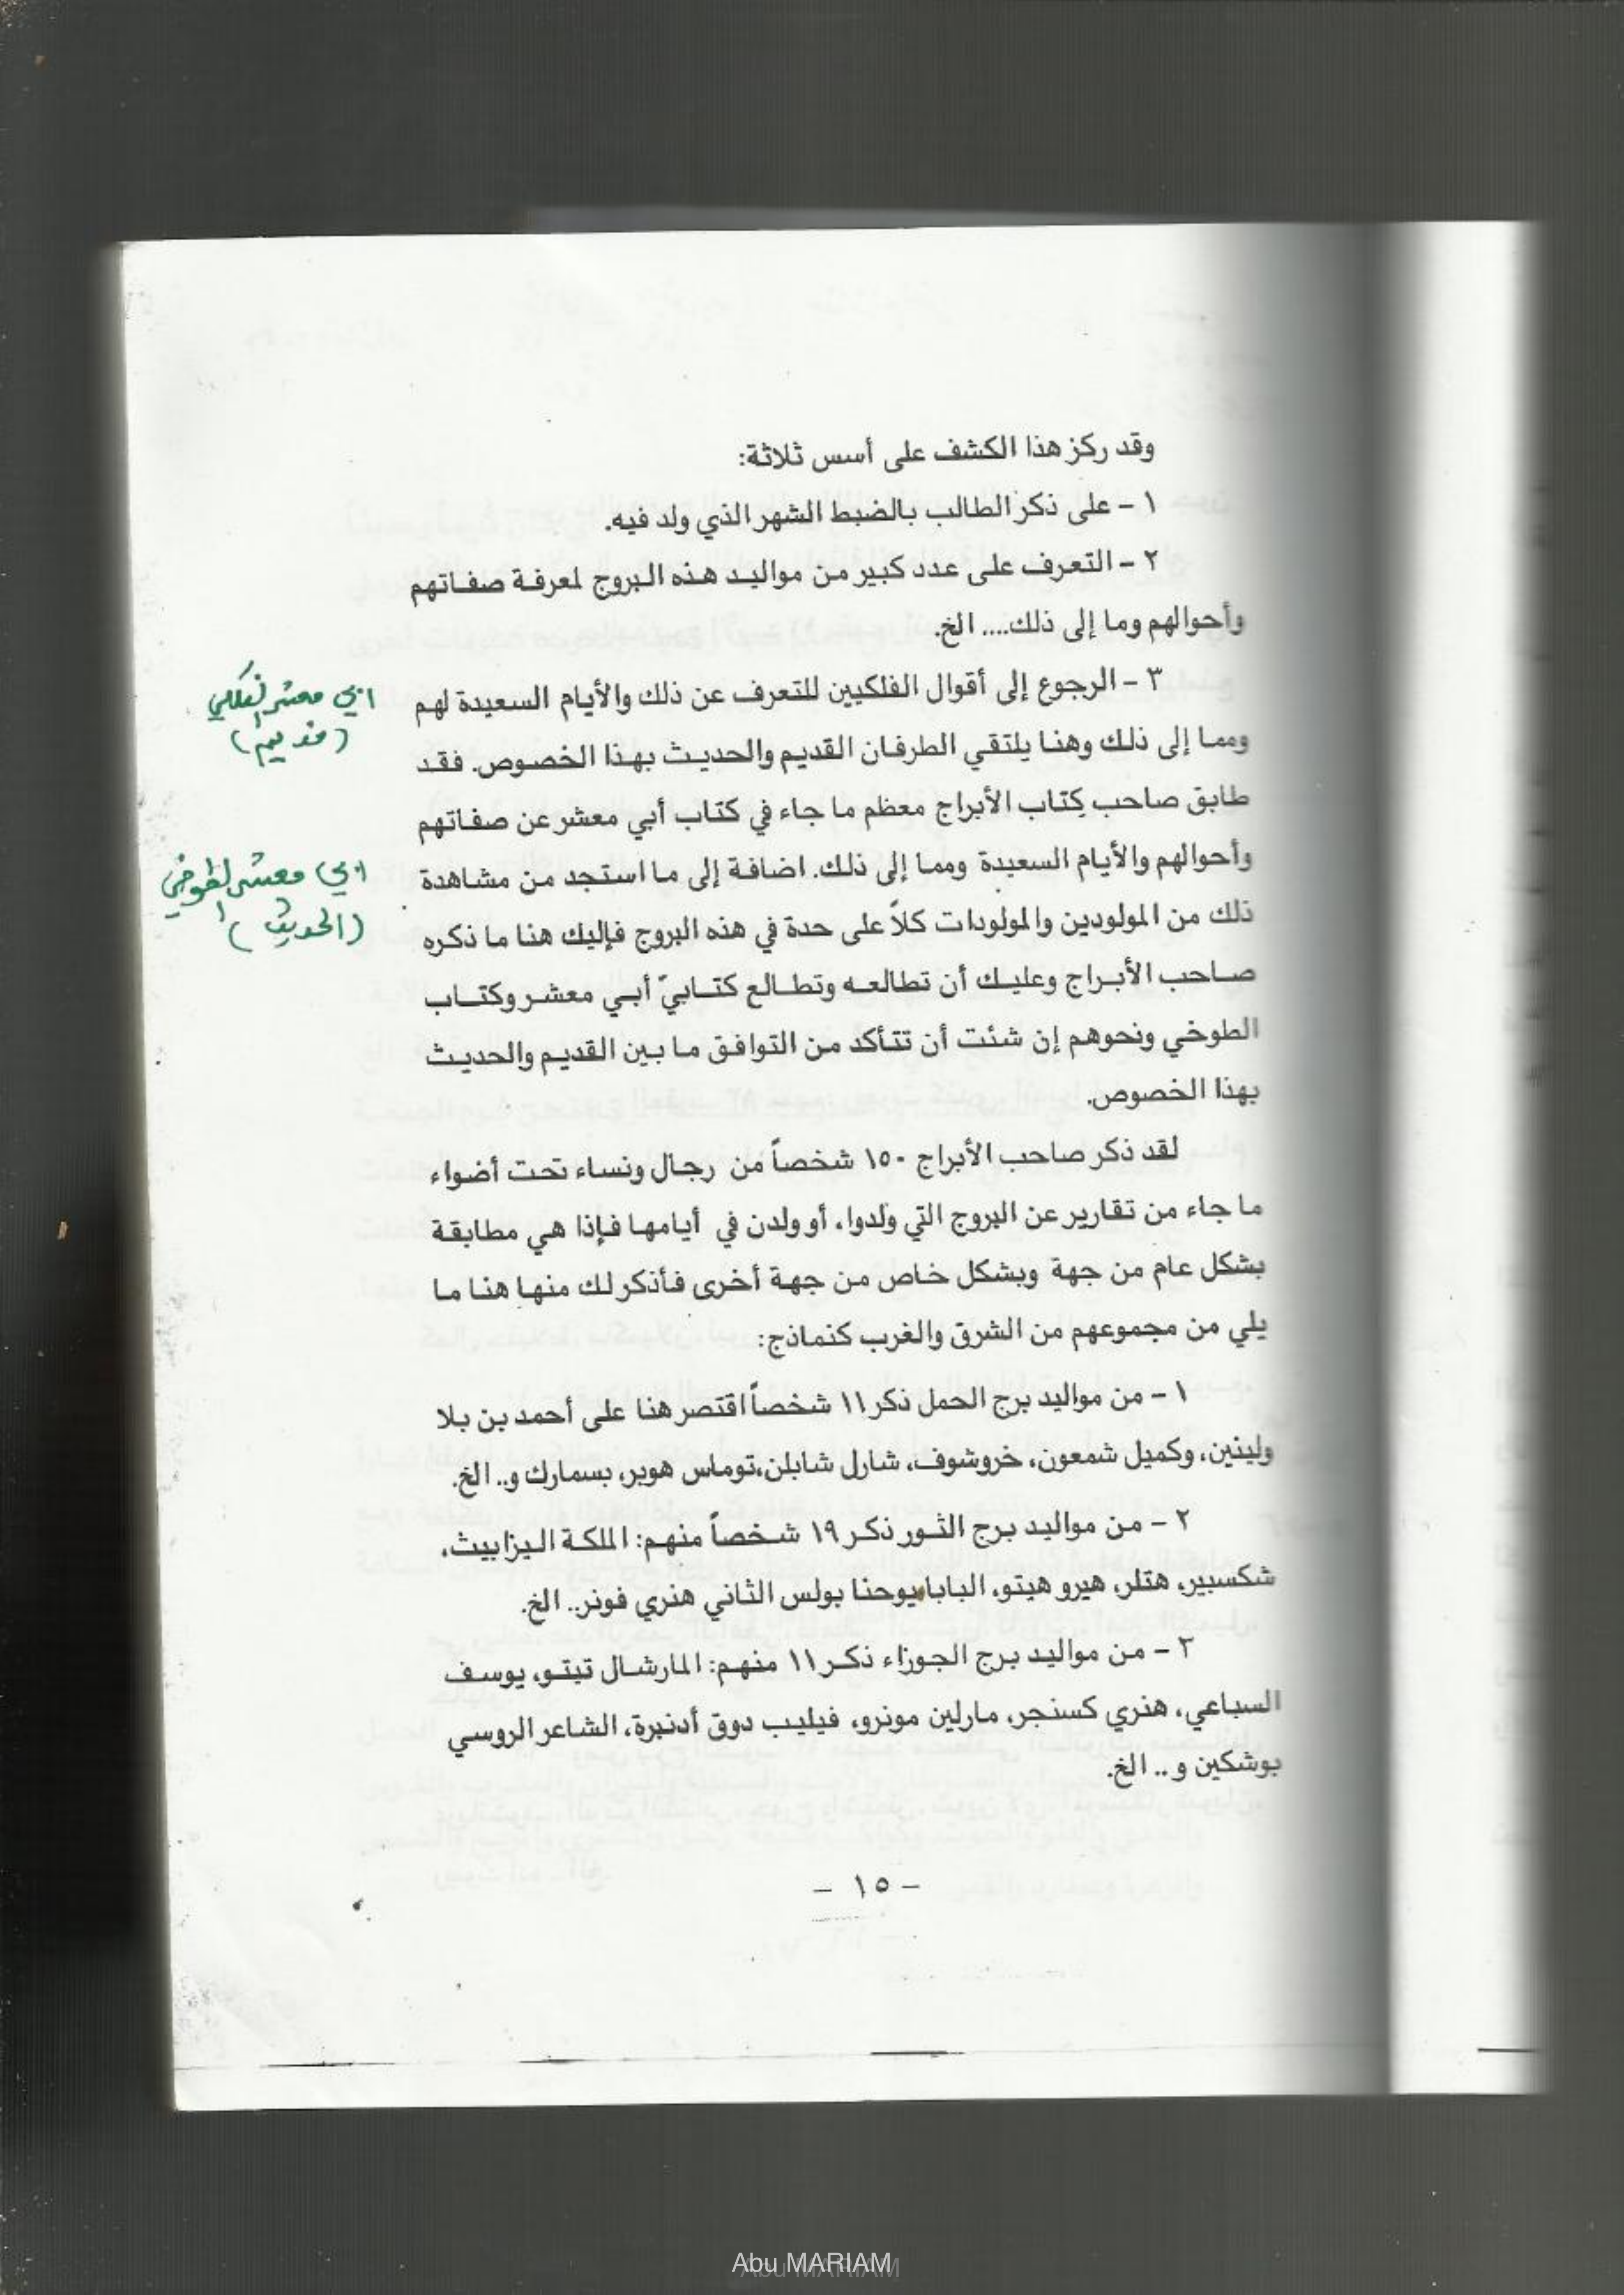 وقد ركز هذا الكشف على أسس ثلاثة:
١ - على ذكر الطالب بالضبط الشهر الذي ولد فيه.
٢ - التعرف على عدد كبير من مواليد هذه البروج لمعرفة صفاتهم
وأحوالهم وما إلى ذلك.... الخ.
٣ - الرجوع إلى أقوال الفلكيين للتعرف عن ذلك والأيام السعيدة لهم
ومما إلى ذلك وهنا يلتقي الطرفان القديم والحديث بهذا الخصوص. فقد
طابق صاحب كتاب الأبراج معظم ما جاء في كتاب أبي معشر عن صفاتهم
وأحوالهم والأيام السعيدة ومما إلى ذلك. اضافة إلى ما استجد من مشاهدة
ذلك من المولودين والمولودات كلاً على حدة في هذه البروج فإليك هنا ما ذكره
صاحب الأبراج وعليك أن تطالعه وتطالع كتابيّ أبي معشر وكتاب
الطوخي ونحوهم إن شئت أن تتأكد من التوافق ما بين القديم والحديث
بهذا الخصوص.
لقد ذكر صاحب الأبراج ١٥٠ شخصاً من رجال ونساء تحت أضواء
ما جاء من تقارير عن البروج التي ولدوا، أو ولدن في أيامها فإذا هي مطابقة
بشكل عام من جهة وبشكل خاص من جهة أخرى فأذكر لك منها هنا ما
يلي من مجموعهم من الشرق والغرب كنماذج:
١ - من مواليد برج الحمل ذكر ١١ شخصاً اقتصر هنا على أحمد بن بلا
ولينين، وكميل شمعون، خروشوف، شارل شابلن، توماس هوبر، بسمارك و.. الخ.
٢ - من مواليد برج الثور ذكر ١٩ شخصاً منهم: الملكة اليزابيث،
شكسبير، هتلر، هيرو هيتو، البابا يوحنا بولس الثاني هنري فونر.. الخ.
٣ - من مواليد برج الجوزاء ذكر ١١ منهم: المارشال تيتو، يوسف
السباعي، هنري كسنجر، مارلين مونرو، فيليب دوق أدنبرة، الشاعر الروسي
بوشكين و .. الخ.
- ١٥ -
ابي معشر الفلكي
(قديم)
ابي معشر الطوخي
(الحديث)
Abu MARIAM